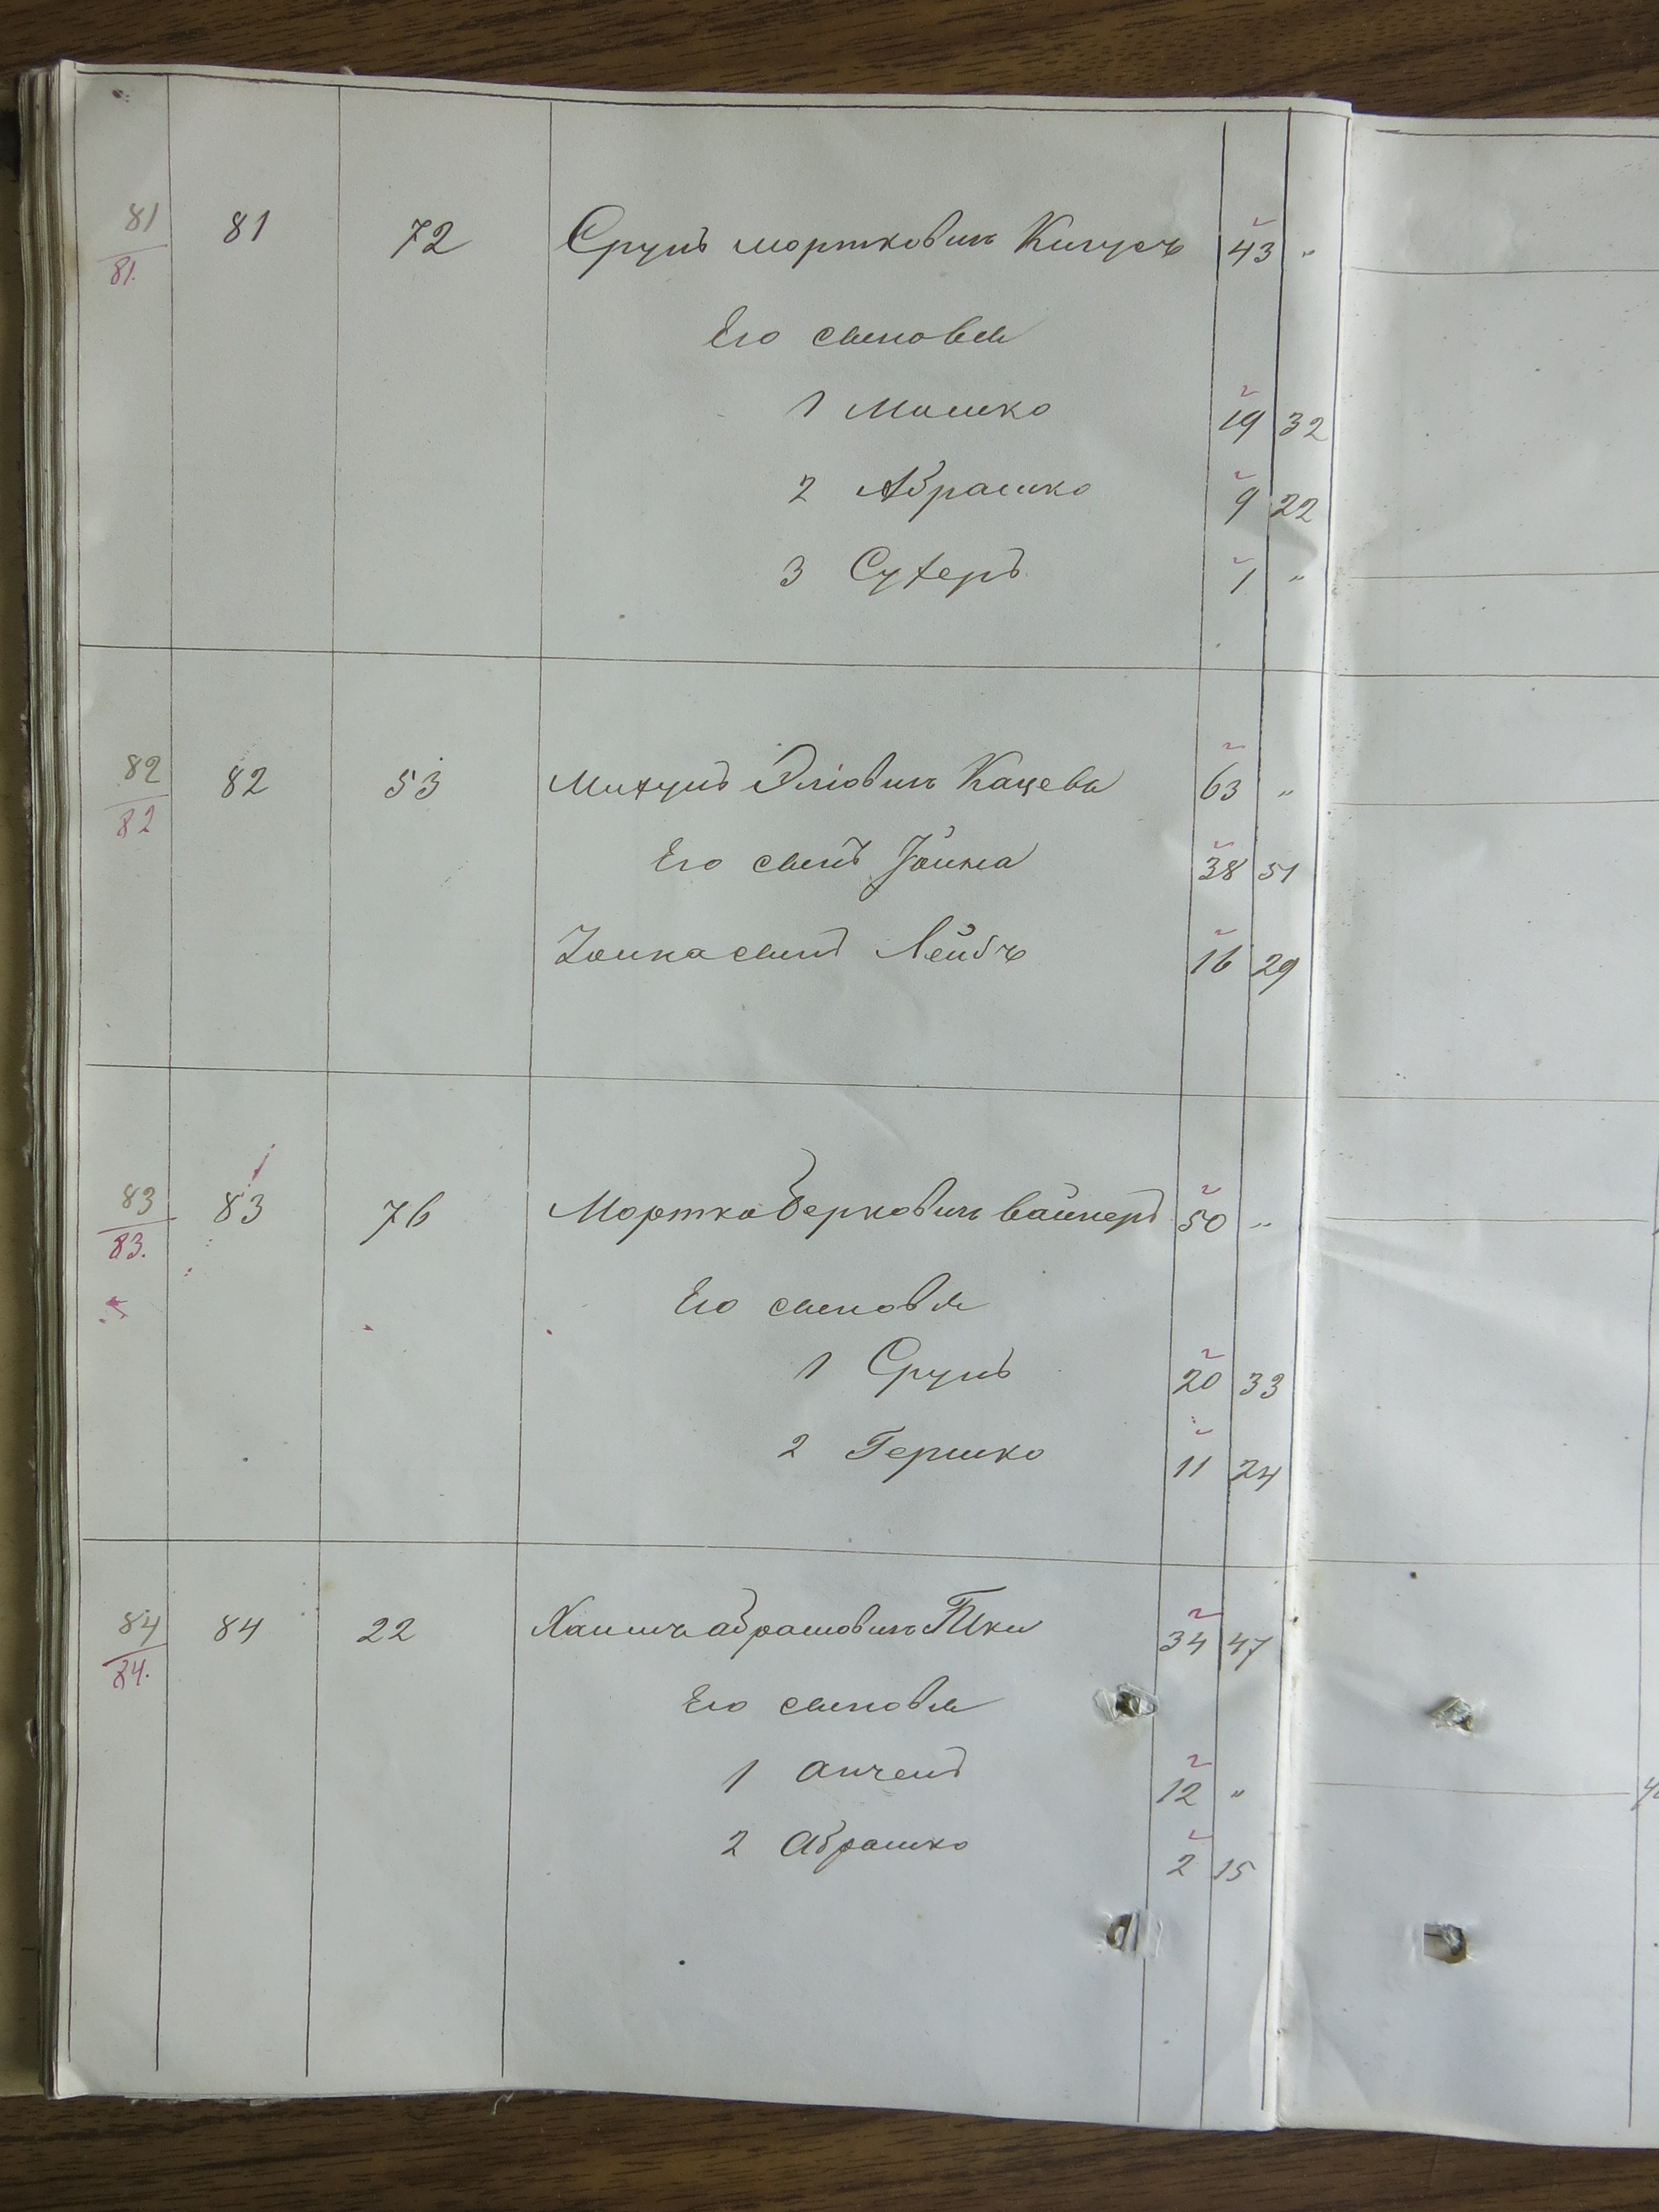 81 81 72 Сруль Мортковичъ Кигусъ 43 "
81.
Его сыновья
1 Мошко 19 32
2 Абрашко 9 22
3 Сухеръ 1 "
82 82 53 Михуль Эліовичъ Кацева 63 "
82
Его сынъ Іоина 38 51
Іоина сынъ Лейбъ 16 29
83 83 76 Мортко Берковичъ Вайнеръ 50 "
83.
Его сыновья
1 Сруль 20 33
2 Гершко 11 24
84 84 22 Хаимъ Абрамовичъ 34 47
84.
Его сыновья
1 Анчель 12 "
2 Абрашко 2 15